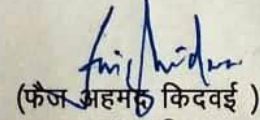 (फैज अहमद किदवई )